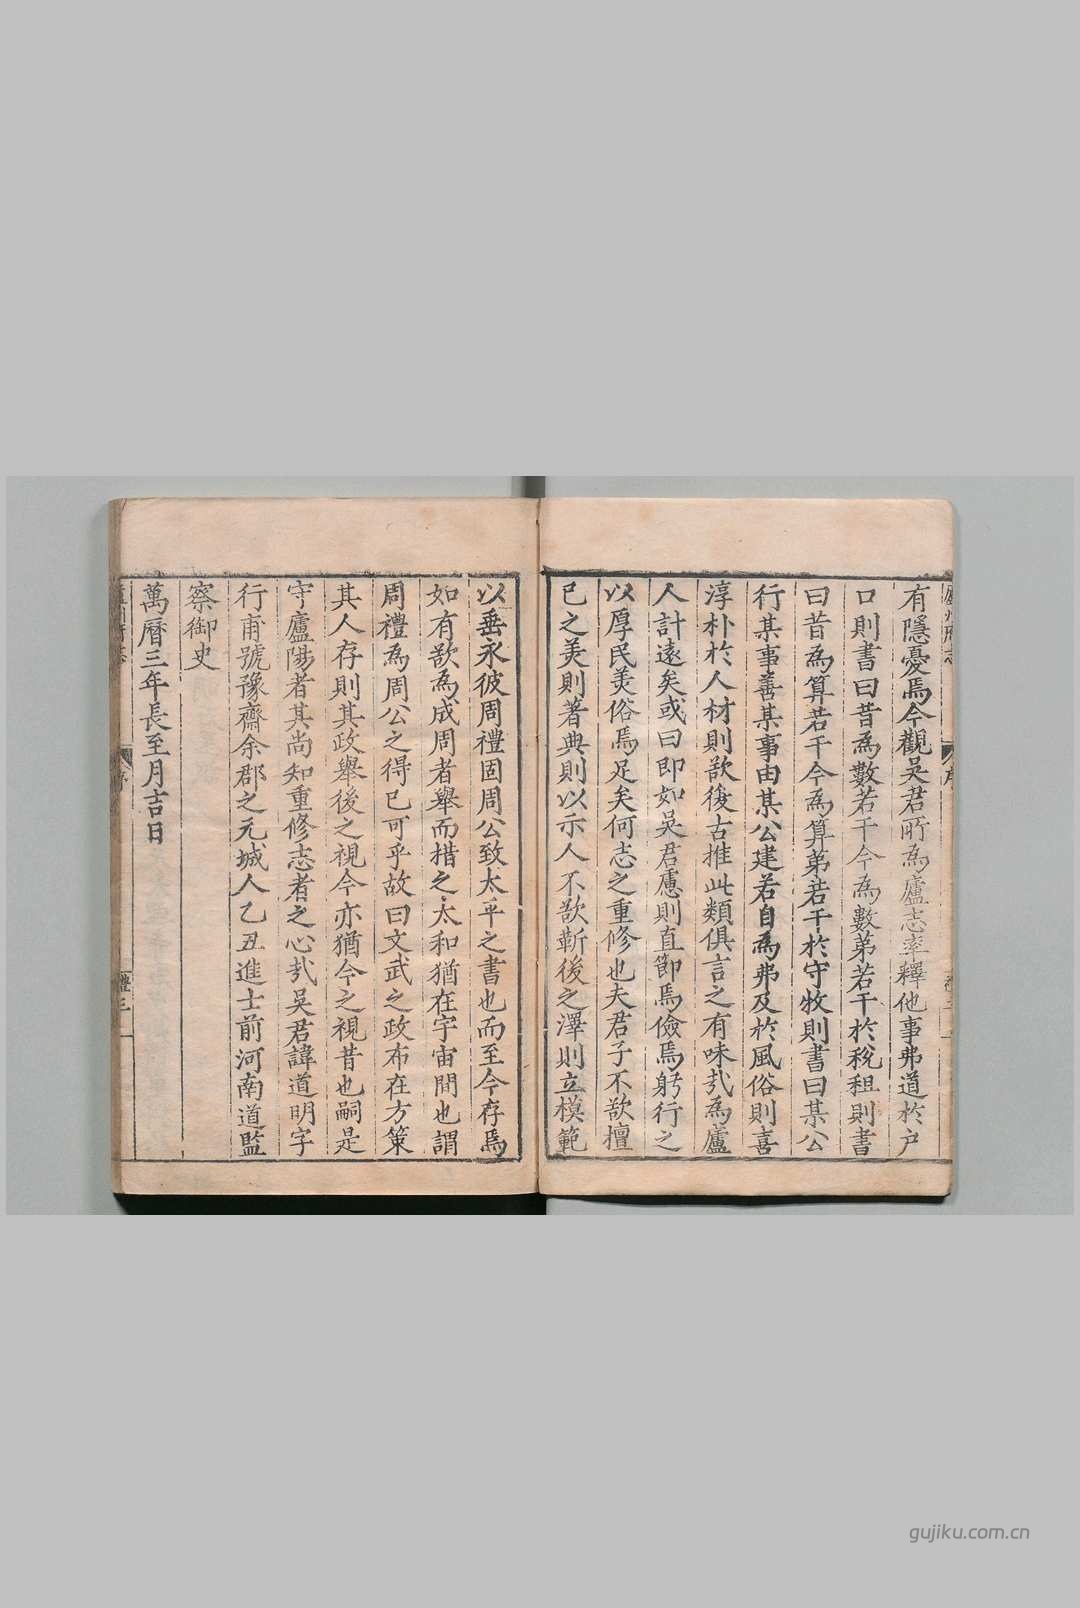 有隱憂焉今觀吳君所為廬志率釋他事弗道於户
口則書曰昔為數若干今為數第若干於稅租則書
曰昔為算若干今為算第若干於守牧則書曰某公
行某事善某事由某公建若自為弗及於風俗則喜
淳朴於人材則欲復古推此類俱言之有味㢤為廬
人計遠矣或曰即如吳君慮則直節焉儉焉躬行之
以厚民美俗焉足矣何志之重修也夫君子不欲擅
已之美則著典則以示人不欲靳後之澤則立模範
以垂永彼周禮固周公致太平之書也而至今存焉
如有欲為成周者舉而措之太和猶在宇宙間也謂
周禮為周公之得已可乎故曰文武之政布在方策
其人存則其政舉後之視今亦猶今之視昔也嗣是
守廬陽者其尚知重修志者之心㢤吳君諱道明字
行甫號豫齋余郡之元城人乙丑進士前河南道監
察御史
萬曆三年長至月吉日
序
禮三
gujiku.com.cn